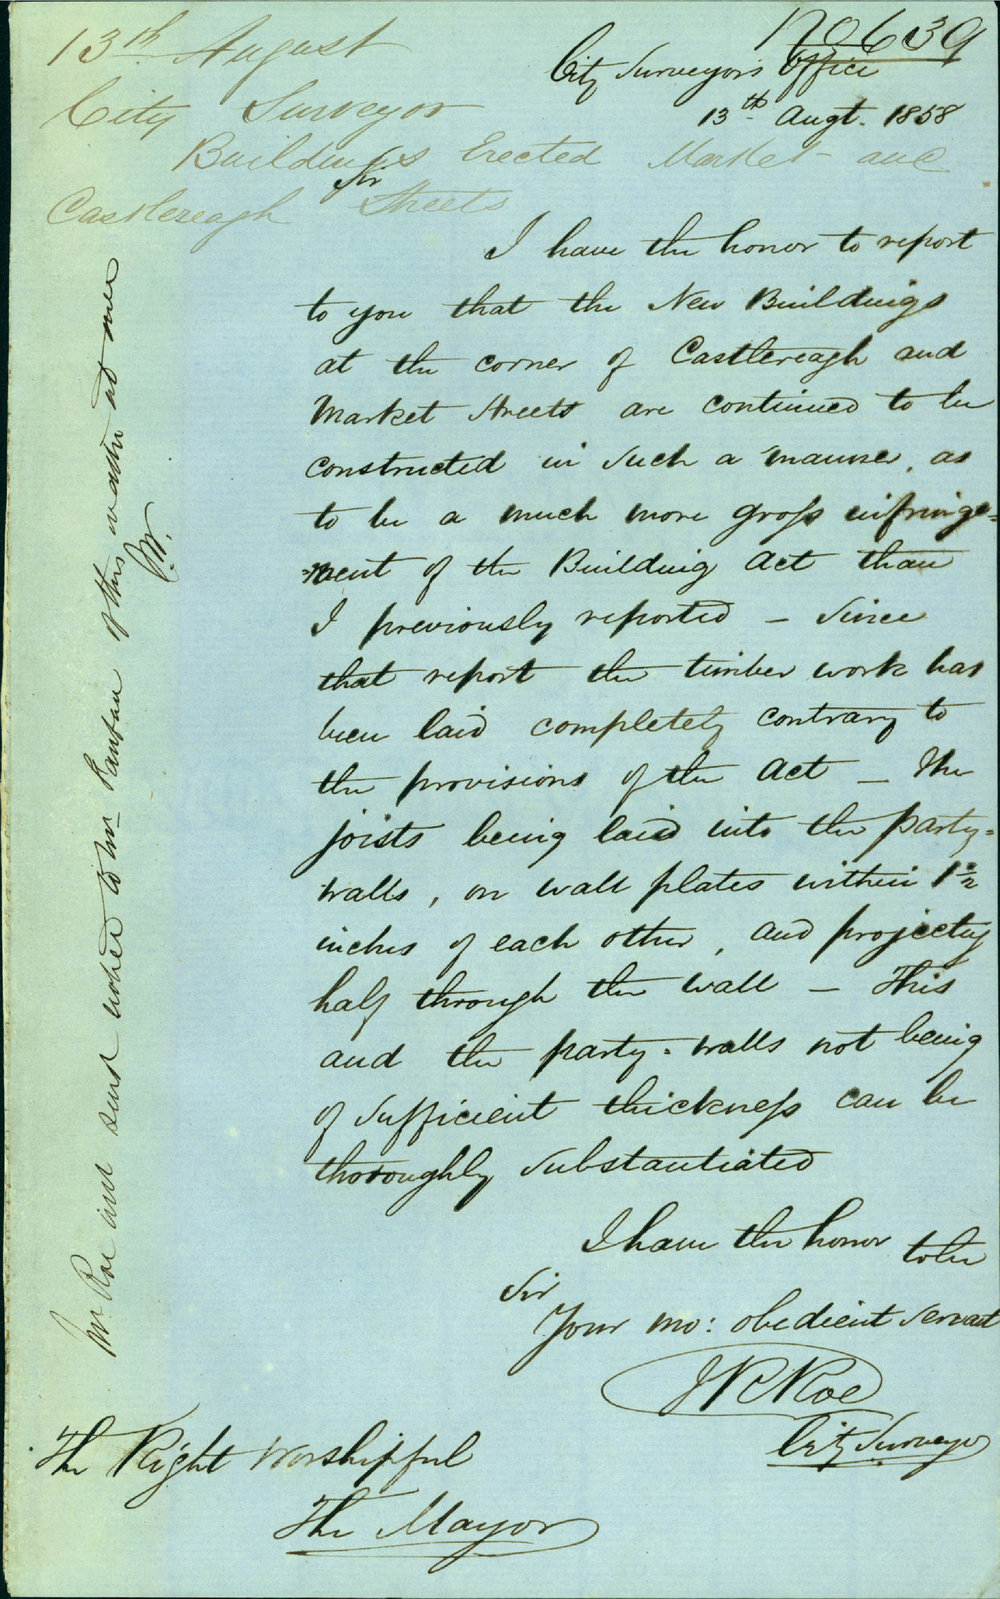 No 639
13th August
City Surveyor
Buildings Erected Market and
Castlereagh Streets
City Surveyor's Office
13th Augt. 1858
Sir
I have the honor to report
to you that the New Buildings
at the corner of Castlereagh and
Market Streets are continued to be
constructed in such a manner, as
to be a much more gross infringe=
=ment of the Building Act than
I previously reported – Since
that report the timber work has
been laid completely contrary to
the provisions of the Act – The
joists being laid into the party=
walls, on wall plates within 1½
inches of each other, and projecting
half through the wall – This
and the party-walls not being
of sufficient thickness can be
thoroughly substantiated
I have the honor to be
Sir
Your mo: obedient servant
J R Roe
City Surveyor
The Right Worshipful
The Mayor
Mr Roe and sent notice to Mr of this matter at once